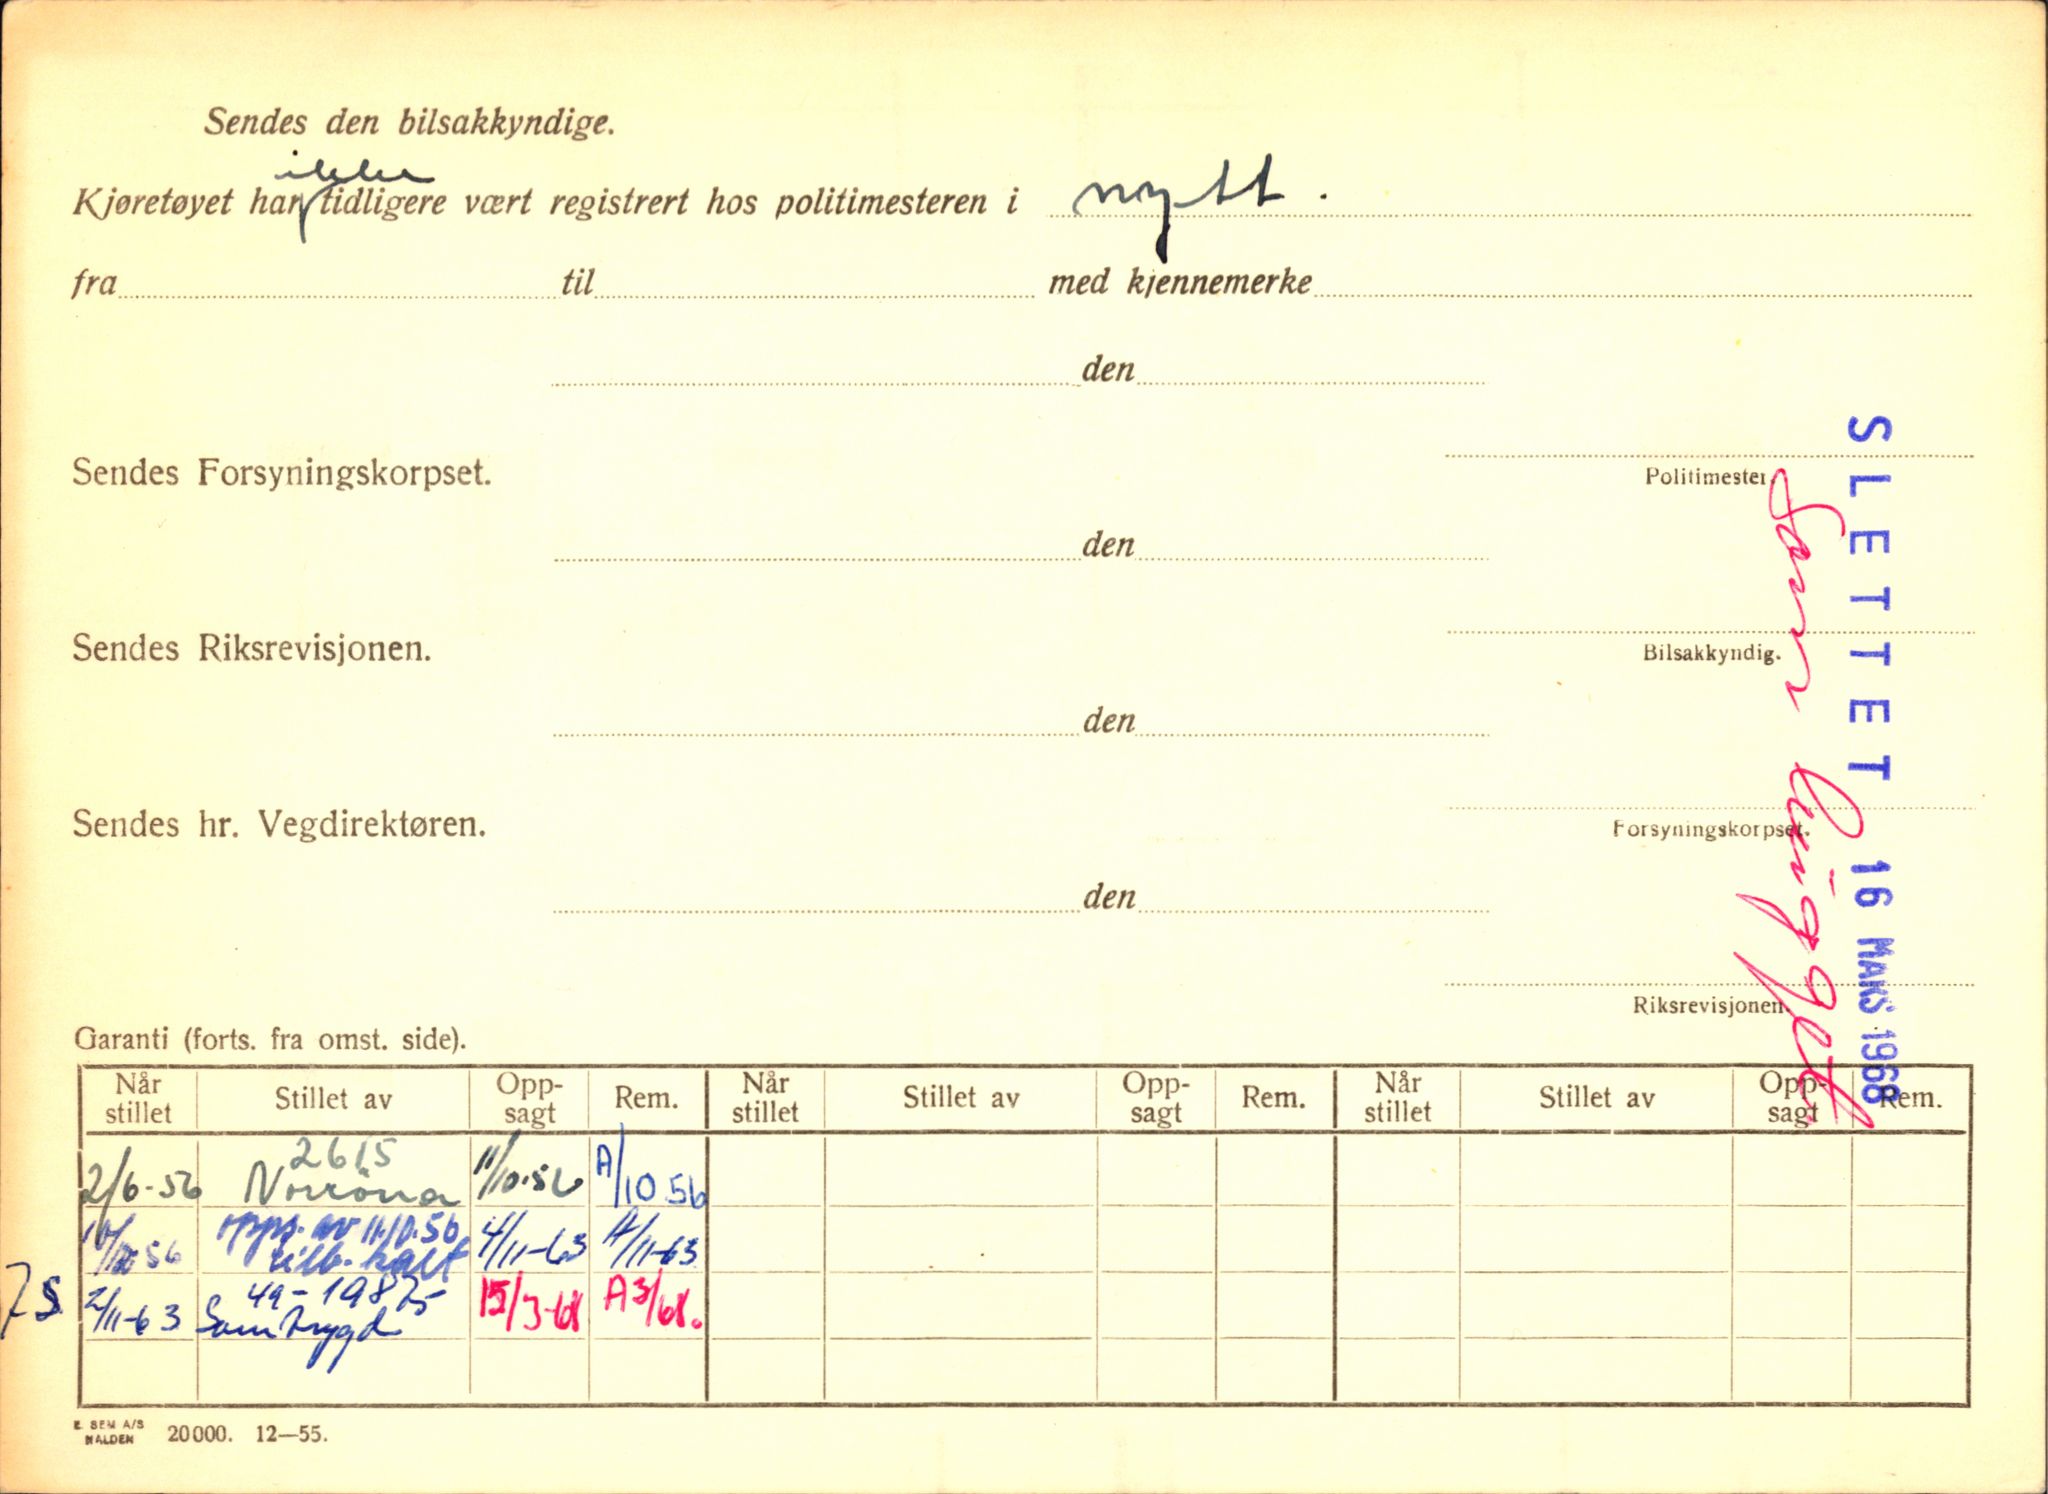 Sendes den bilsakkyndige.
Kjøretøyet har ikke tidligere vært registrert hos politimesteren i nytt.
fra til med kjennemerke
den
Politimester.
Sendes Forsyningskorpset.
den
Bilsakkyndig.
Sendes Riksrevisjonen.
den
Forsyningskorpset.
Sendes hr. Vegdirektøren.
den
Riksrevisjonen.
SLETTET 16 MARS 1968
Som hugget
Garanti (forts. fra omst. side).
Når stillet Stillet av Opp-sagt Rem. Når stillet Stillet av Opp-sagt Rem. Når stillet Stillet av Opp-sagt Rem.
2615
2/6-56 Norröna 11/10-56 A/10 56
opps. av 11.10.56
56 tilb. kalt 4/11-63 A/11-63
49-19875
2/11-63 Samtrygd 15/3-68 A3/68.
E. SEM A/S
HALDEN 20000. 12—55.